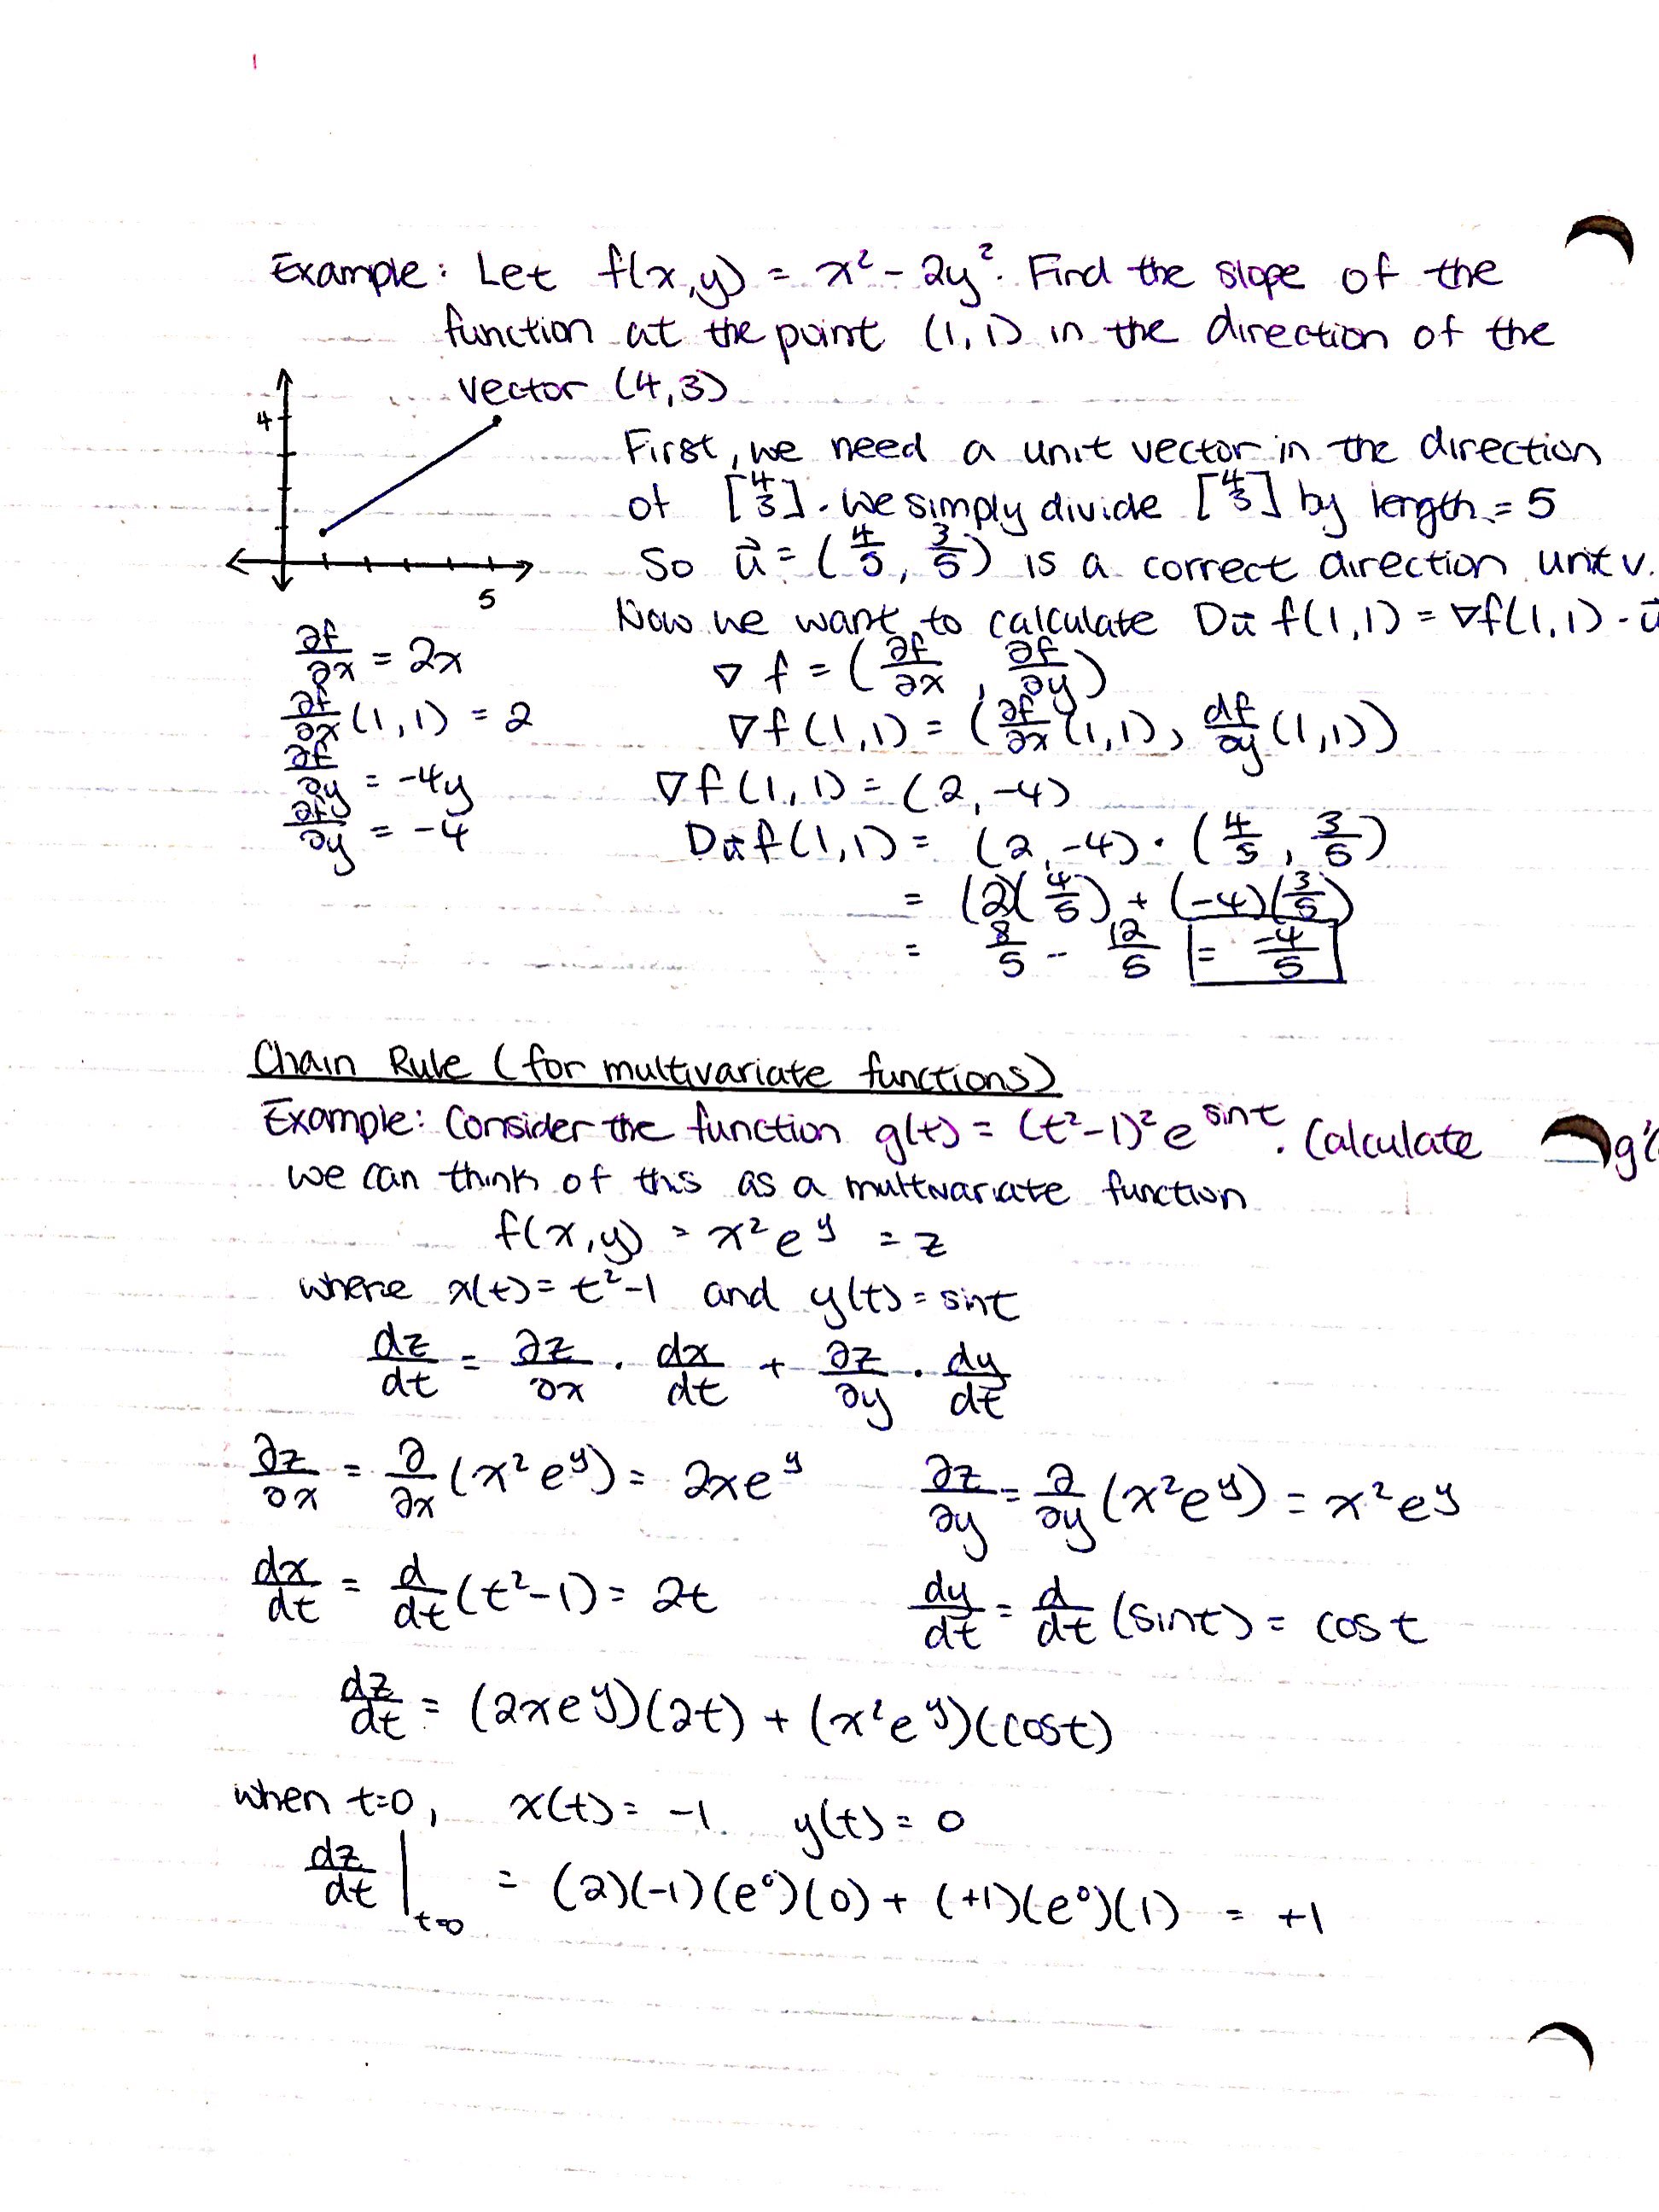 Example: Let f(x,y) = x² - 2y². Find the slope of the
function at the point (1,1) in the direction of the
vector (4,3)
4
5
First, we need a unit vector in the direction
of [4 3]. we simply divide [4 3] by length = 5
So u⃗ = (4/5, 3/5) is a correct direction unit v.
Now we want to calculate Du⃗ f(1,1) = ∇f(1,1) · u⃗
∂f/∂x = 2x
∂f/∂x (1,1) = 2
∂f/∂y = -4y
∂fy/∂y = -4
∇f = (∂f/∂x, ∂f/∂y)
∇f(1,1) = (∂f/∂x (1,1), df/∂y (1,1))
∇f(1,1) = (2,-4)
Du⃗f(1,1) = (2,-4) · (4/5, 3/5)
= (2)(4/5) + (-4)(3/5)
= 8/5 - 12/5 = -4/5
Chain Rule (for multivariate functions)
Example: Consider the function g(t) = (t²-1)² e^sint. Calculate g'(
we can think of this as a multivariate function
f(x,y) = x²e^y = z
where x(t) = t²-1 and y(t) = sint
dz/dt = ∂z/∂x · dx/dt + ∂z/∂y · dy/dt
∂z/∂x = ∂/∂x (x²e^y) = 2xe^y ∂z/∂y = ∂/∂y (x²e^y) = x²e^y
dx/dt = d/dt (t²-1) = 2t dy/dt = d/dt (sint) = cost
dz/dt = (2xe^y)(2t) + (x²e^y)(cost)
when t=0, x(t) = -1 y(t) = 0
dz/dt |t=0 = (2)(-1)(e⁰)(0) + (+1)(e⁰)(1) = +1